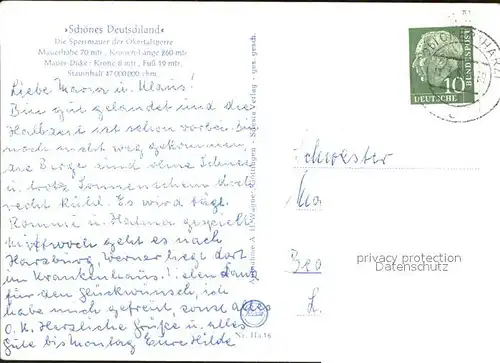 »Schönes Deutschland«
Die Sperrmauer der Okertalsperre
Mauerhöhe 70 mtr., Kronenlänge 260 mtr.
Mauer-Dicke: Krone 8 mtr., Fuß 19 mtr.
Stauinhalt 47 000 000 cbm
Liebe Mama u. Klaus!
Bin gut gelandet und die
Halbzeit ist schon vorbei. Bin
noch nicht weg gekommen,
die Berge sind ohne Schnee
u. trotz Sonnenschein doch
recht kühl. Es wird tägl.
Rommé u. Halma gespielt.
Mittwoch geht es nach
Harzburg, Werner liegt dort
im Krankenhaus! Vielen Dank
für den Glückwunsch, ich
habe mich gefreut, sonst alles
O.K. Herzliche Grüße u. alles
Gute bis Montag Eure Hilde
Schöning & Co
gez. gesch.
DEUTSCHE
BUNDESPOST
10
Schwester
Ma
privacy protection
Datenschutz
L.